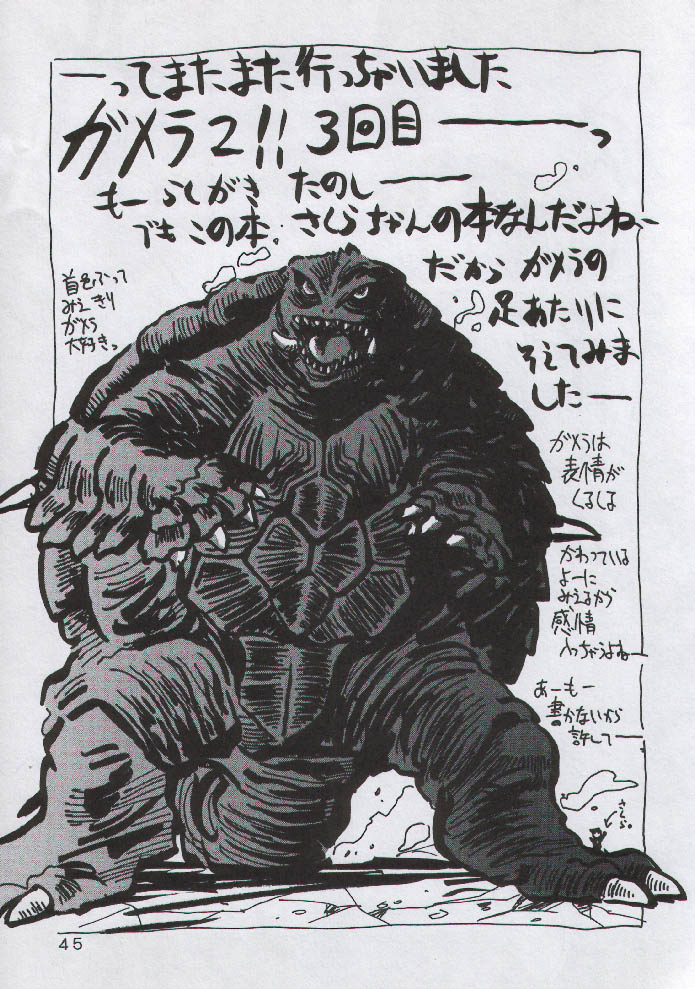 ーってまたまた行っちゃいました
ガメラ2!! 3回目ーーーっ
もーらしがき たのしーー
でもこの本 さくらちゃんの本なんだよねー
だから ガメラの
足あたりに
そえてみま
したー
首をふって
みえきり
ガメラ
大好きっ
ガメラは
表情が
くるしよ
かわっている
よーに
みえるから
感情
入っちゃうよねー
あーもー
書かないから
許してー
さくら
45